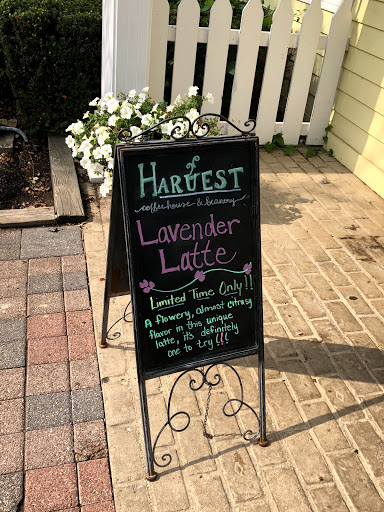 Harvest
coffeehouse & beanery
Lavender
Latte
Limited Time Only!!
A flowery, almost citrusy
flavor in this unique
latte, it's definitely
one to try!!!